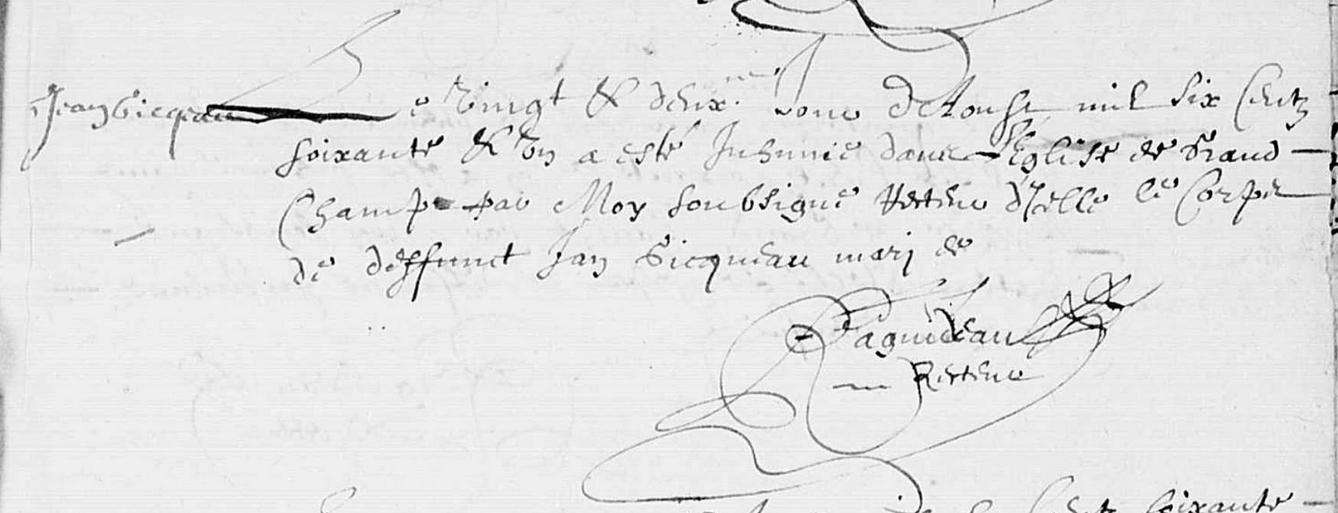 Jean Gicqeau
Le Vingt & deux.me Jour d'Aoust mil six Centz
soixante & Un a esté Inhumé dans l'Eglise de Grand
Champ par Moy soubsigné Recteur d'Icelle le Corps
de deffunct Jan Gicqueau mary de
Paguideau
Recteur
soixante